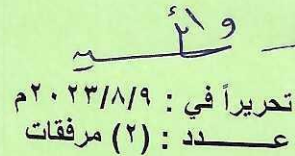 تحريراً في : ٢٠٢٣/٨/٩م
عـــــدد : (٢) مرفقات